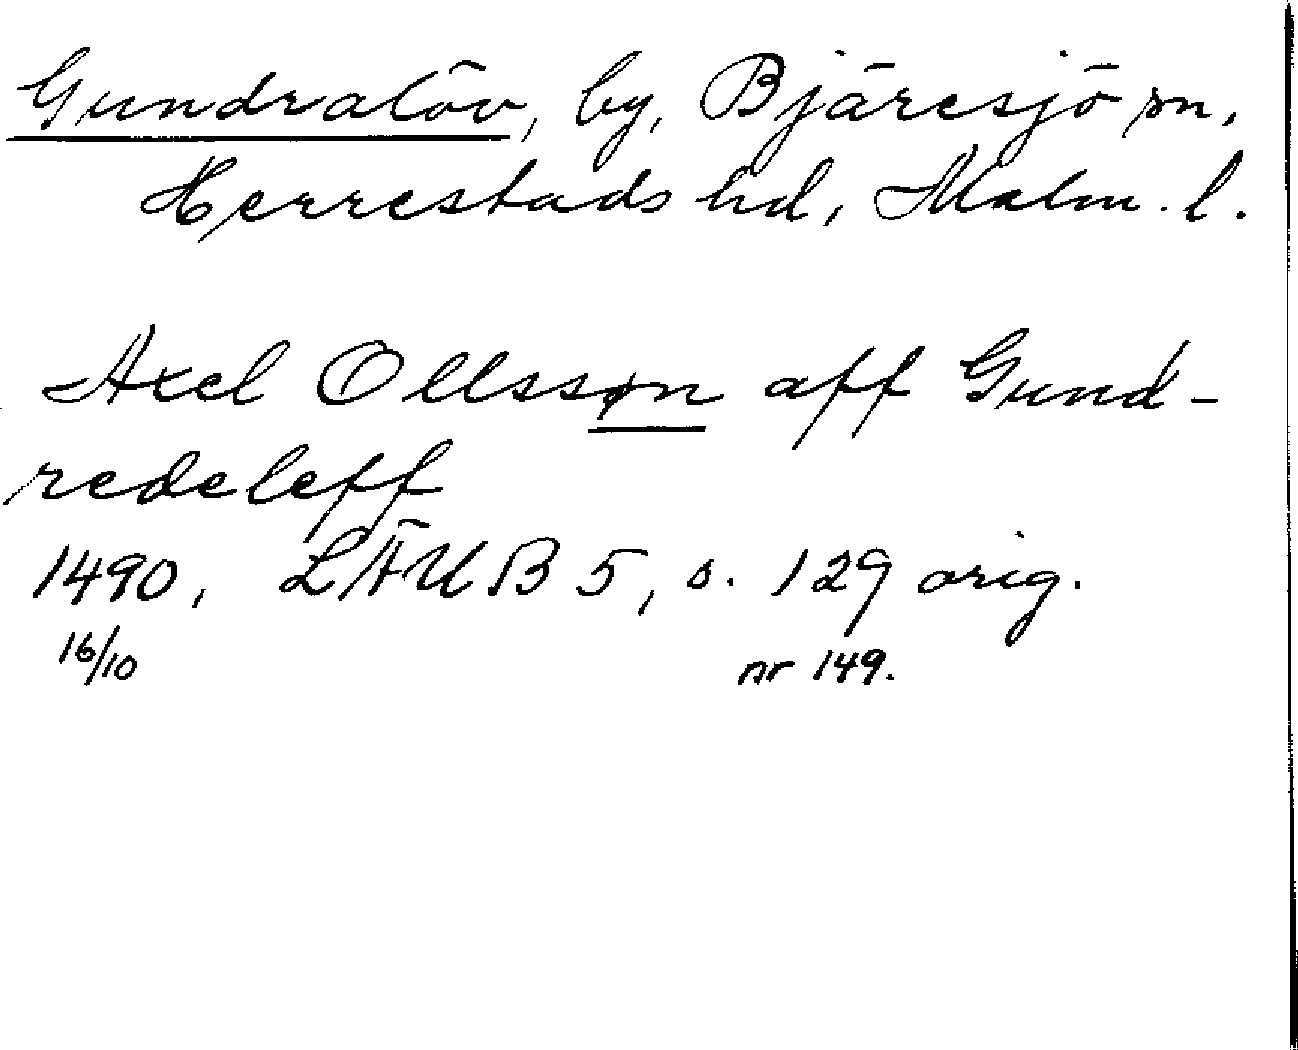 Gundralöv, by, Bjäresjö sn,
Herrestads hd, Malm. l.
Axel Ollsson aff Gund-
redeleff
1490, LÄUB 5, s. 129 orig.
16/10 nr 149.